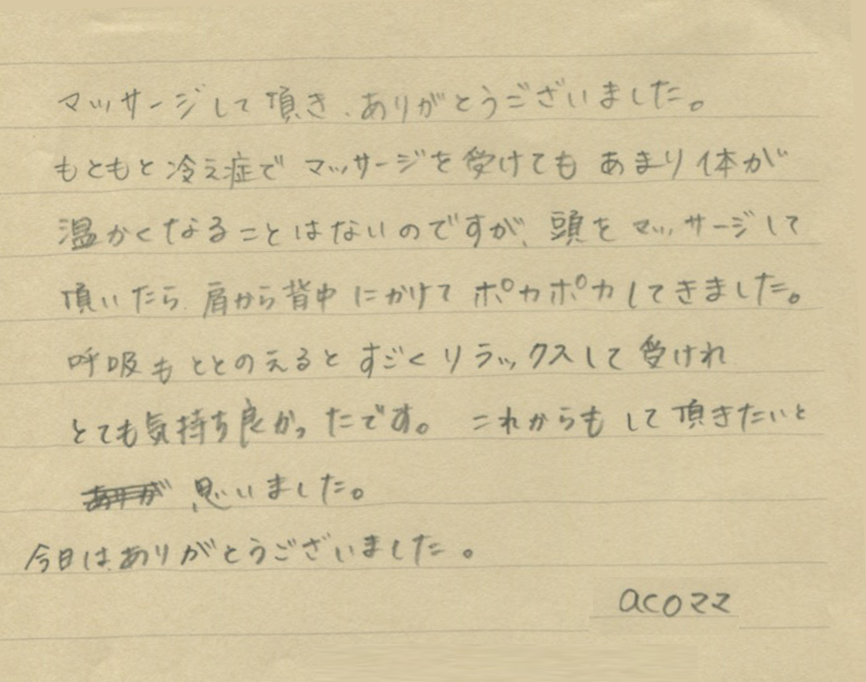 マッサージして頂き、ありがとうございました。
もともと冷え症で マッサージを受けても あまり体が
温かくなることはないのですが、頭を マッサージして
頂いたら、肩から背中にかけて ポカポカしてきました。
呼吸もととのえると すごくリラックスして受けれ
とても気持ち良かったです。 これからもして頂きたいと
思いました。
今日は、ありがとうございました。
acoママ